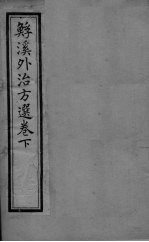 鯚溪外治方選卷下